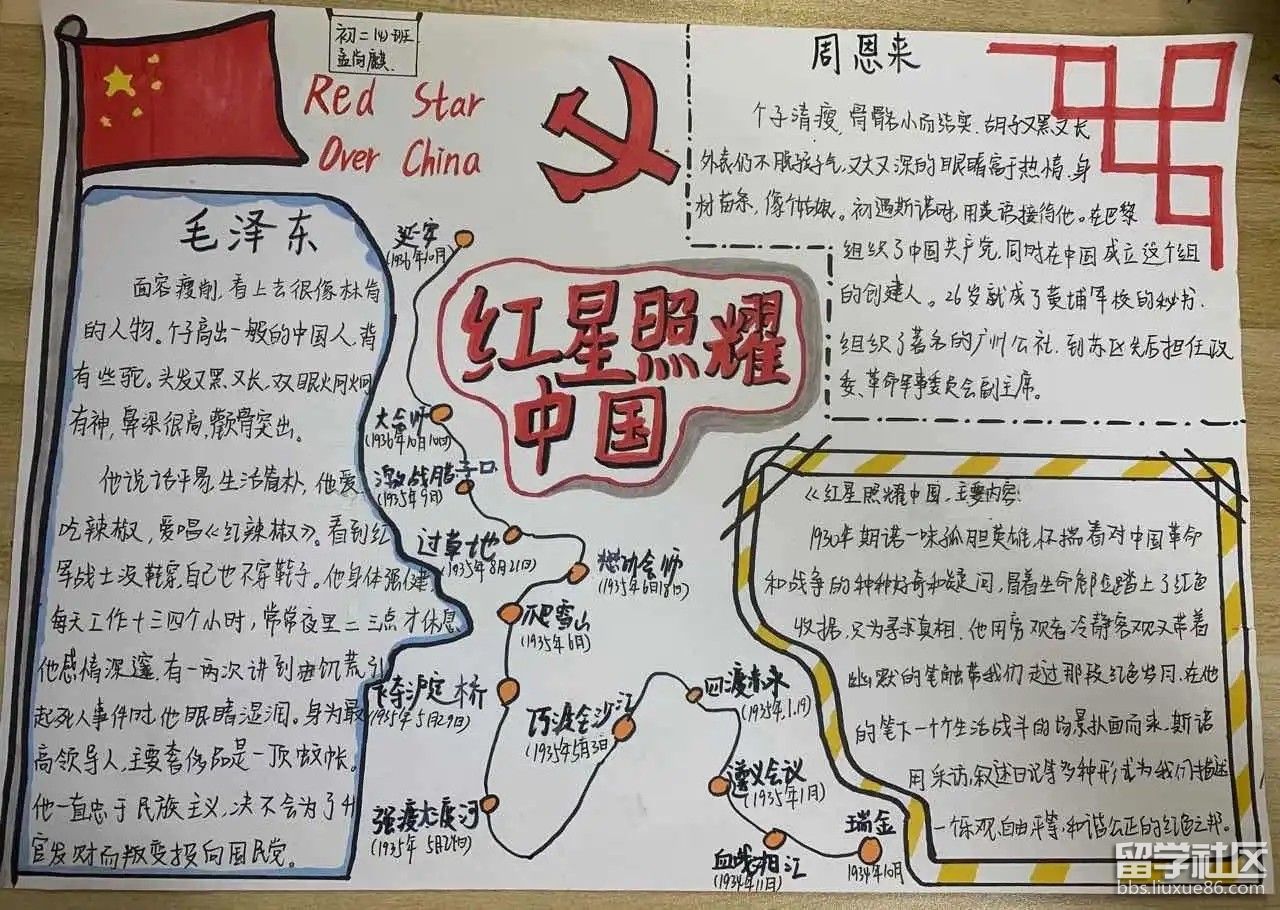 初二(4)班
孟尚麒
Red Star
Over China
毛泽东
面容瘦削,看上去很像林肯
的人物。个子高出一般的中国人,背
有些驼。头发又黑又长,双眼炯炯
有神,鼻梁很高,颧骨突出。
他说话平易,生活简朴,他爱
吃辣椒,爱唱《红辣椒》。看到红
军战士没鞋穿,自己也不穿鞋子。他身体强健
每天工作十三四个小时,常常夜里二三点才休息
他感情深邃,有一两次讲到
起死人事件时,他眼睛湿润。身为最
高领导人,主要奢侈品是一顶蚊帐。
他一直忠于民族主义,决不会为了升
官发财而叛变投向国民党。
延安
(1936年10月)
大会师
(1936年10月10日)
激战腊子口
(1935年9月)
过草地
(1935年8月21日)
懋功会师
(1935年6月18日)
爬雪山
(1935年6月)
飞夺泸定桥
(1935年5月29日)
强渡大渡河
(1935年5月24日)
巧渡金沙江
(1935年5月3日
四渡赤水
(1935年.1.19)
遵义会议
(1935年1月)
血战湘江
(1934年11月)
瑞金
1934年10月
红星照耀
中国
周恩来
个子清瘦,骨骼小而结实,胡子又黑又长
外表仍不脱孩子气,又大又深的眼睛富于热情,身
材苗条,像个姑娘。初遇斯诺时,用英语接待他。在巴黎
组织了中国共产党,同时在中国成立这个组
的创建人。26岁就成了黄埔军校的秘书.
组织了著名的广州公社,到苏区先后担任政
委、革命军事委员会副主席。
《红星照耀中国,主要内容:
孤胆英雄,怀揣着对中国革命
和战争的种种好奇和疑问,冒着生命危险踏上了红色
只为寻求真相.他用旁观者冷静客观又带着
幽默的笔触带我们走过那段红色岁月.在他
的笔下一个个生活战斗的场景扑面而来.斯诺
用采访.叙述日记等多种形式为我们描述
一个乐观.自由平等.和谐公正的红色之邦。
留学社区
bbs.liuxue86.com